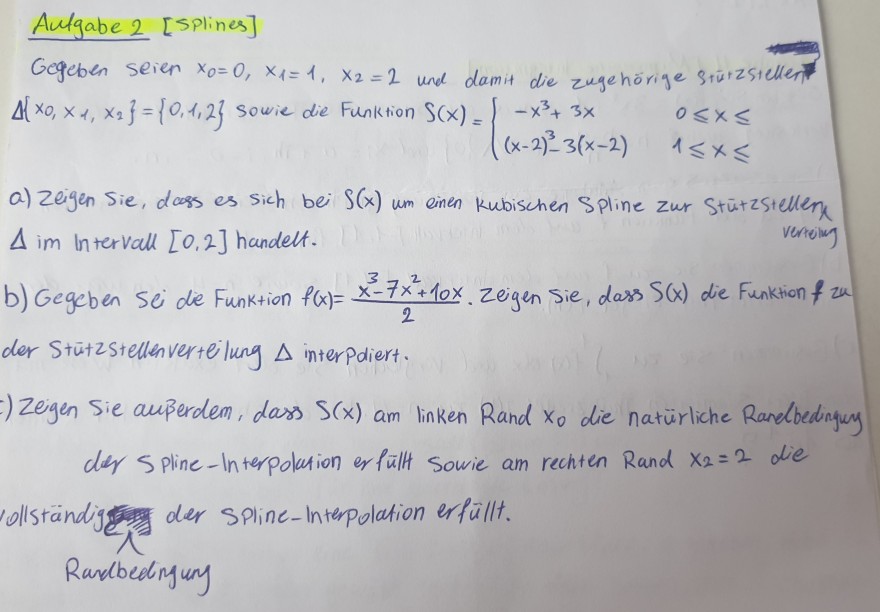 Aufgabe 2 [Splines]
Gegeben seien x₀=0, x₁=1, x₂=2 und damit die zugehörige Stützstellen
Δ{x₀, x₁, x₂}={0,1,2} sowie die Funktion S(x) = { -x³+ 3x 0≤x≤
(x-2)³-3(x-2) 1≤x≤
a) Zeigen Sie, dass es sich bei S(x) um einen kubischen Spline zur Stützstellen
verteilung
Δ im Intervall [0,2] handelt.
b) Gegeben sei die Funktion f(x)= (x³-7x²+10x)/2. Zeigen Sie, dass S(x) die Funktion f zu
der Stützstellenverteilung Δ interpoliert.
c) Zeigen Sie außerdem, dass S(x) am linken Rand x₀ die natürliche Randbedingung
der Spline-Interpolation erfüllt sowie am rechten Rand x₂=2 die
vollständige der Spline-Interpolation erfüllt.
Randbedingung